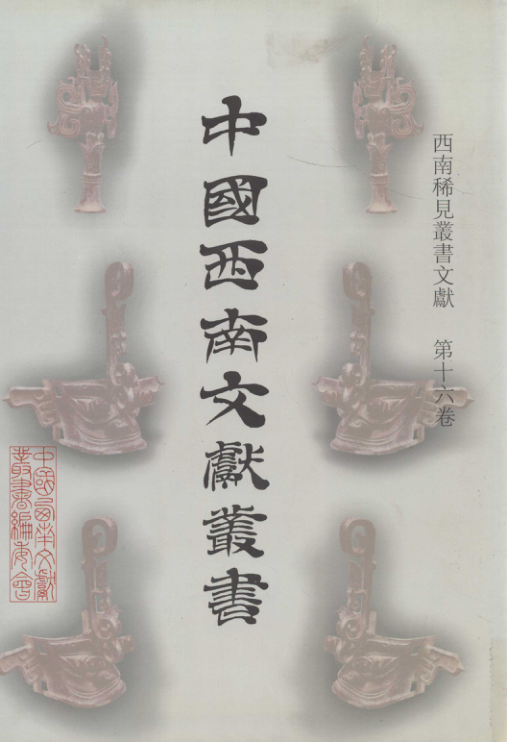 西南稀見叢書文獻 第十六卷
中國西南文獻叢書
中國西南文獻
叢書編委會